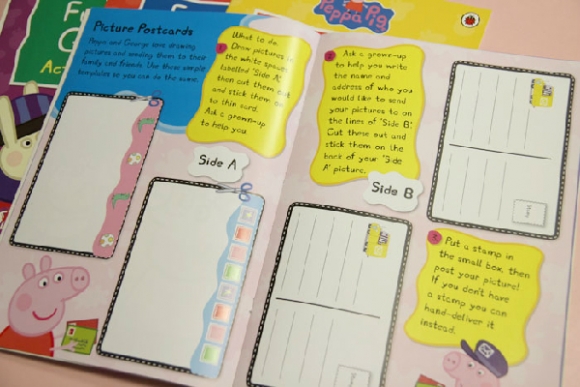 Peppa Pig
Picture Postcards
Peppa and George love drawing
pictures and sending them to their
family and friends. Use these simple
templates so you can do the same.
What to do.
1
Draw pictures in
the white spaces
labelled 'Side A',
then cut them out
and stick them on
to thin card.
Ask a grown-up
to help you.
2
Ask a grown-up
to help you write
the name and
address of who you
would like to send
your pictures to on
the lines of 'Side B'.
Cut these out and
stick them on the
back of your 'Side
A' picture.
Side A
Side B
3
Put a stamp in
the small box, then
post your picture!
If you don't have
a stamp you can
hand-deliver it
instead.